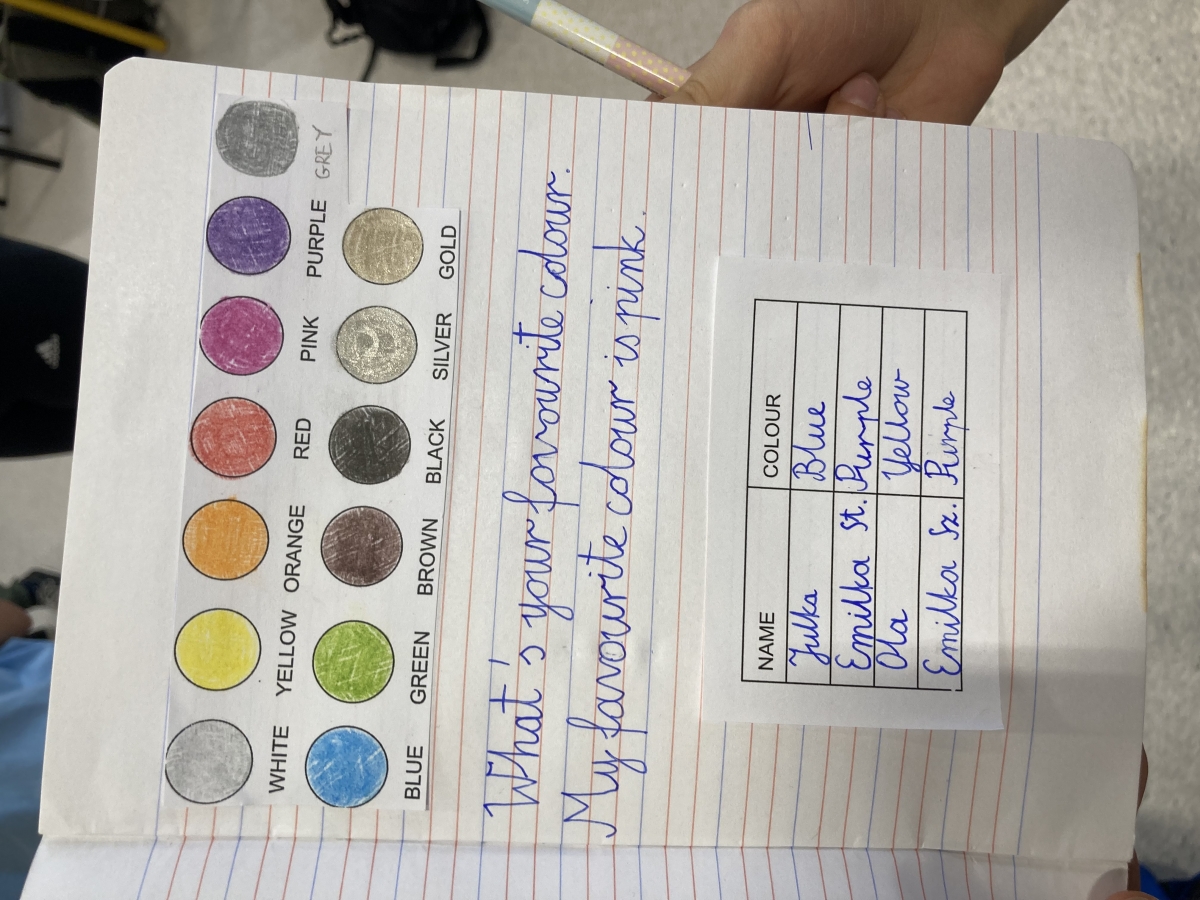 WHITE YELLOW ORANGE RED PINK PURPLE GREY
BLUE GREEN BROWN BLACK SILVER GOLD
What's your favourite colour.
My favourite colour is pink.
NAME COLOUR
Julka Blue
Emilka St. Purple
Ola Yellow
Emilka Sz. Purple